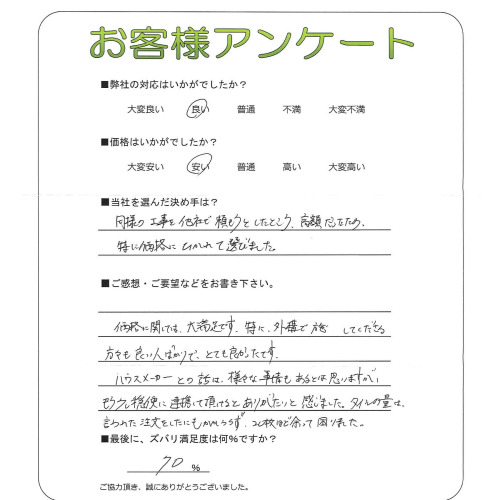 お客様アンケート
■弊社の対応はいかがでしたか？
大変良い 良い 普通 不満 大変不満
■価格はいかがでしたか？
大変安い 安い 普通 高い 大変高い
■当社を選んだ決め手は？
同様の工事を他社で頼もうとしたところ、高額だったため、
特に価格にひかれて選びました。
■ご感想・ご要望などをお書き下さい。
価格に関しては、大満足です。特に、外構で施 してくださる
方々も良い人ばかりで、とても良かったです。
ハウスメーカーとの話は、様々な事情もあるとは思いますが、
もう少し機便に連携して頂けるとありがたいと感じました。タイルの量は、
言われた注文をしたにもかかわらず、20枚ほど余って困りました。
■最後に、ズバリ満足度は何％ですか？
70 %
ご協力頂き、誠にありがとうございました。